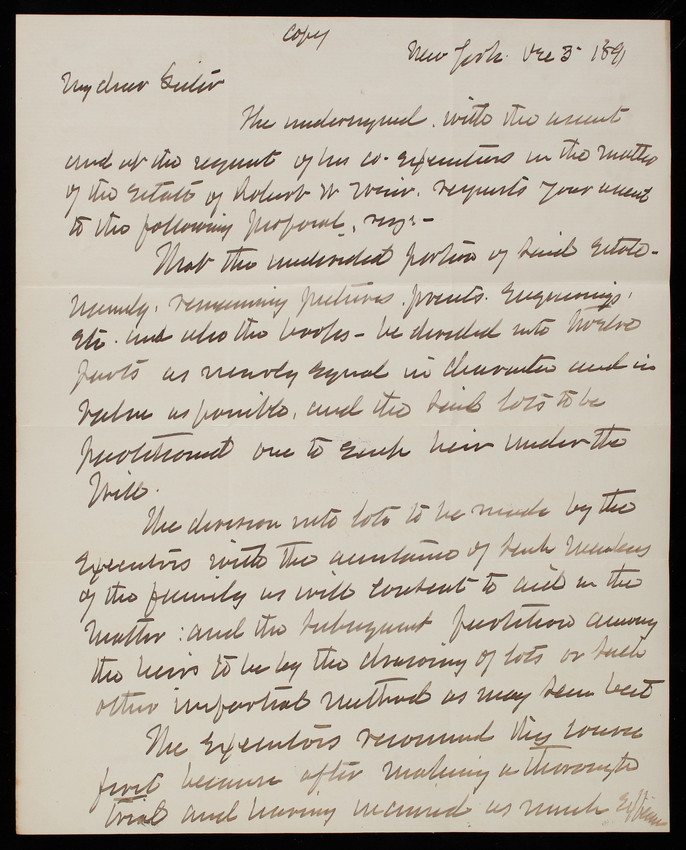 Copy
New York. Dec 5 1891
My dear Sister
The undersigned, with the assent
and at the request of his co-executors in the matter
of the Estate of Robert W Weir, requests your assent
to the following proposal,
That the undivided portion of said Estate-
namely, remaining pictures, prints. Engravings,
etc. and also the books - be divided into twelve
parts as nearly equal in character and in
value as possible, and the said lots to be
partitioned one to each heir under the
Will.
The division into lots to be made by the
Executors with the assistance of such members
of the family as will consent to aid in the
matter: and the subsequent partition among
the heirs to be by the drawing of lots or such
other impartial method as may seem best
The Executors recommend this course
first because after making a thorough
trial and having incurred as much